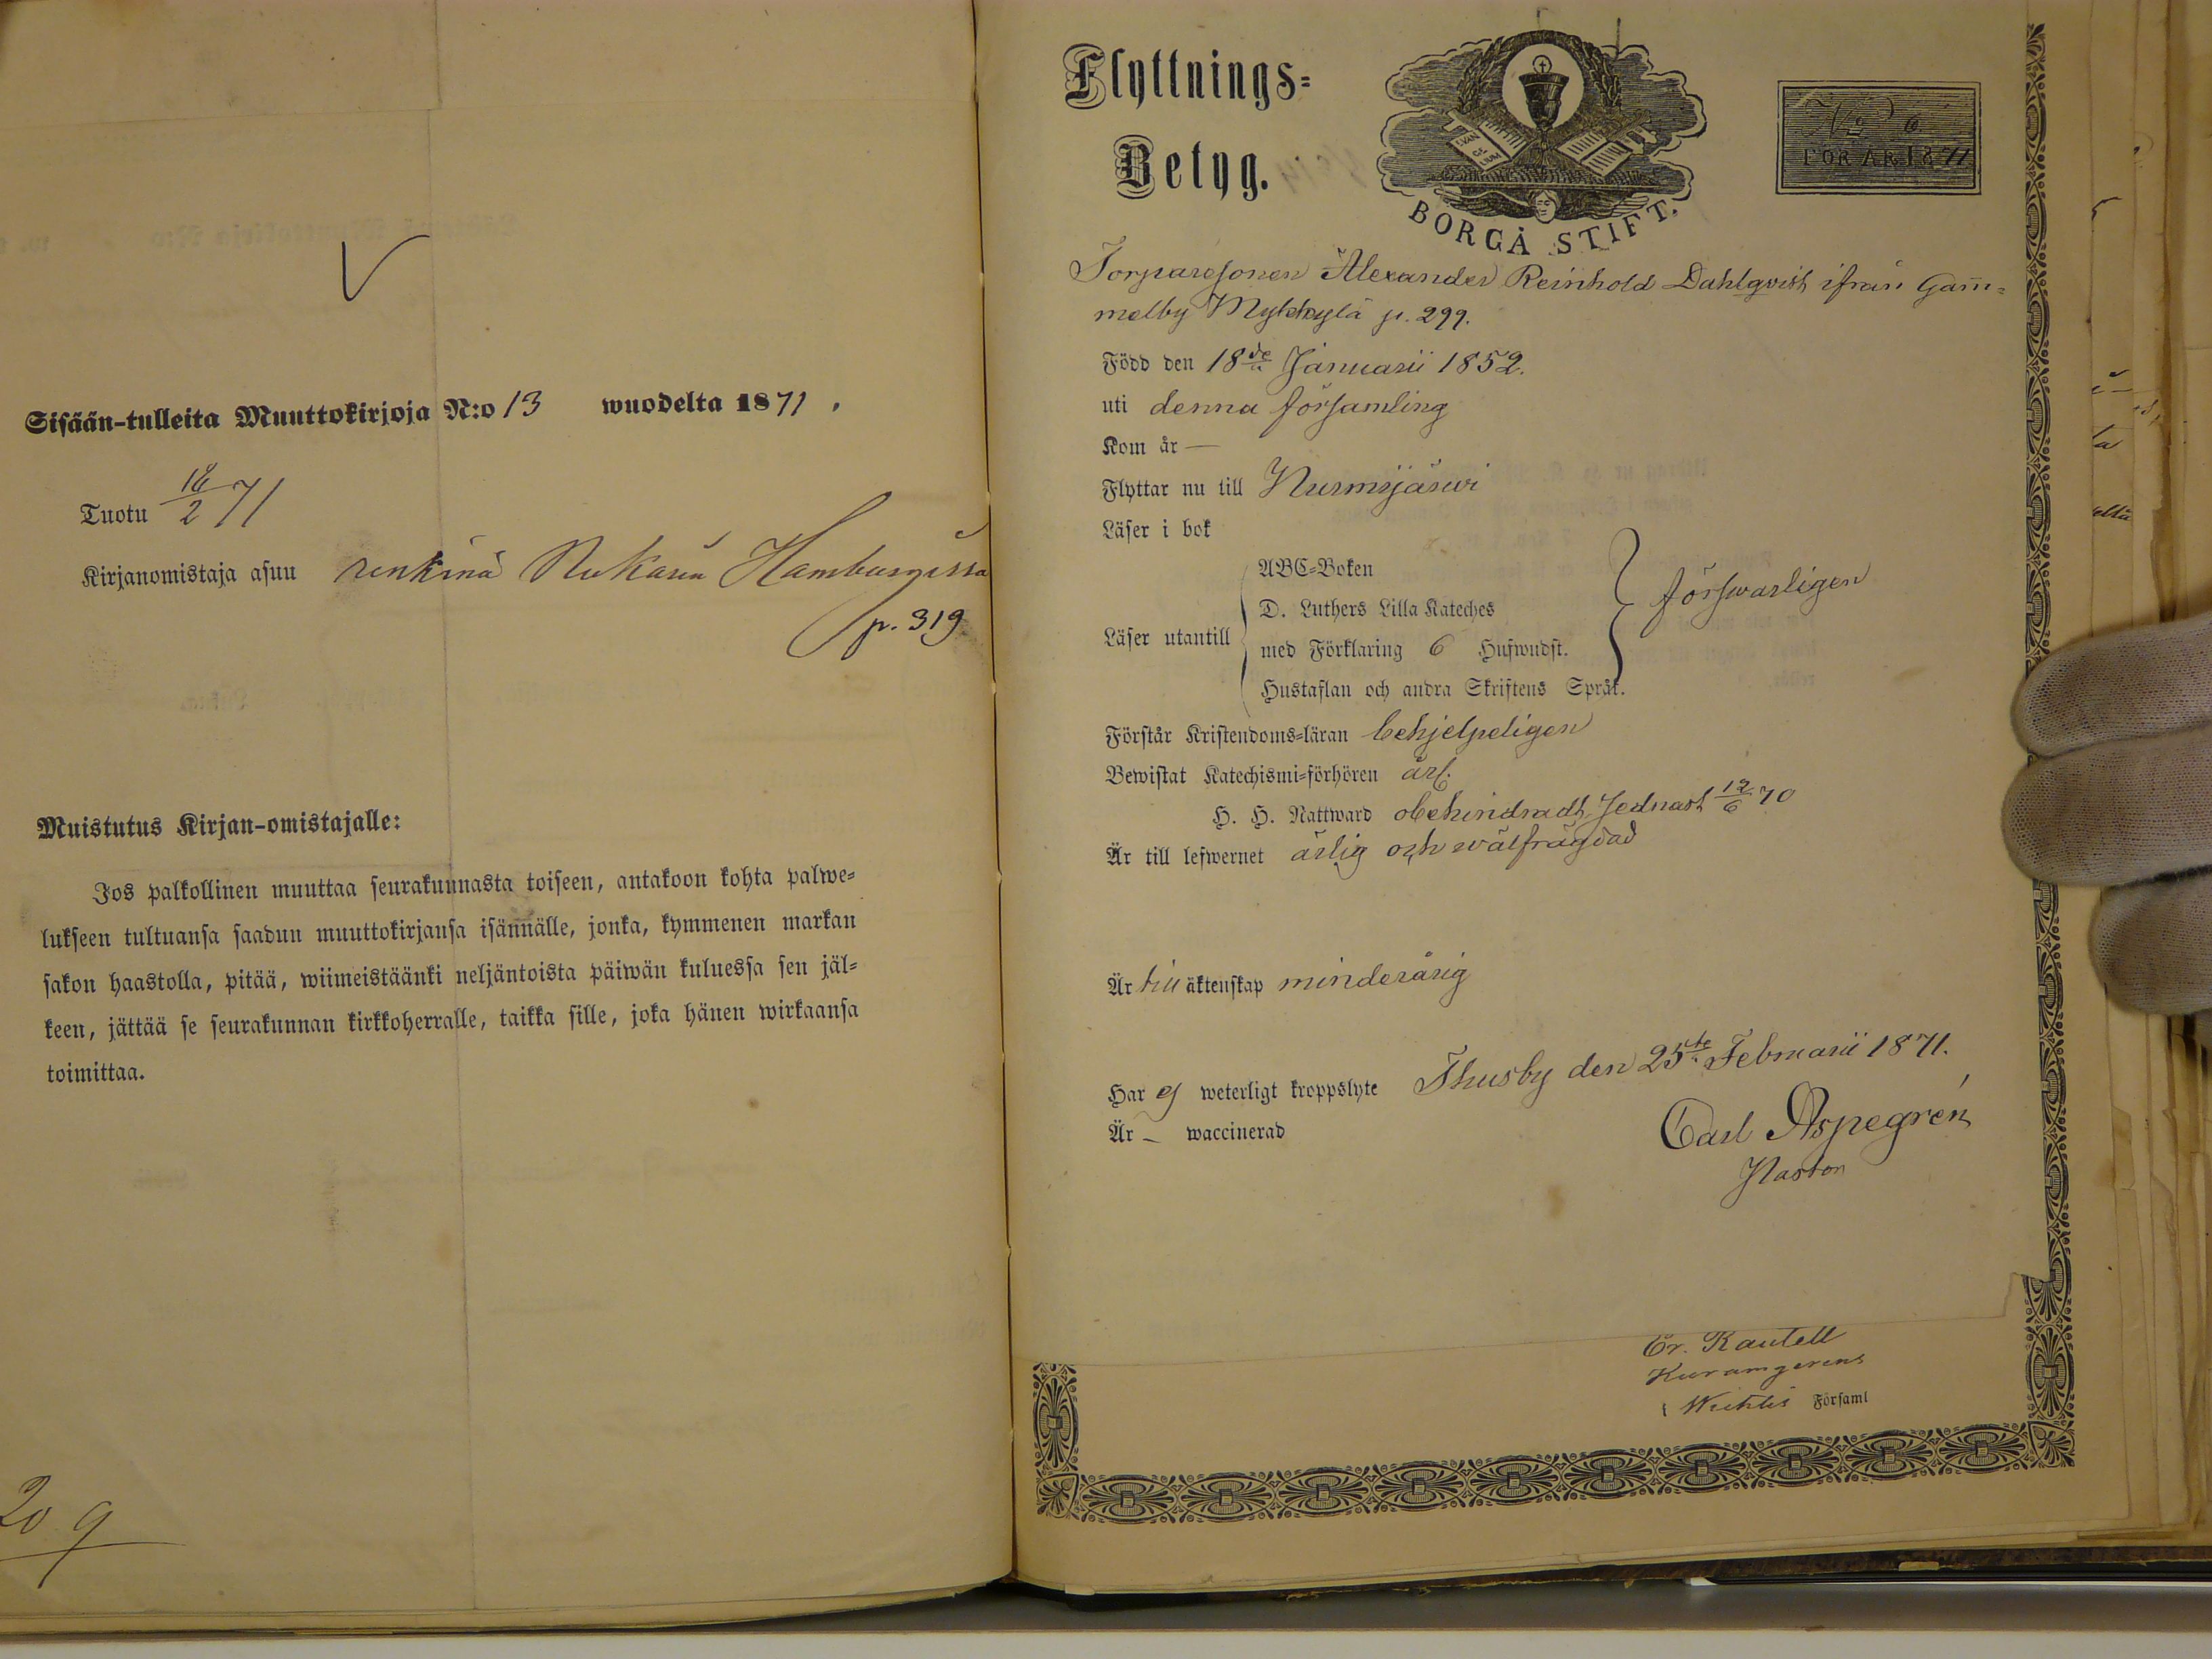 Sisään-tulleita Muuttokirjoja N:o 13 wuodelta 1871.
Tuotu 18/2 71
Kirjanomistaja asuu renkinä Nukarin Hamburissa
p. 319
Muistutus Kirjan-omistajalle:
Jos palkollinen muuttaa seurakunnasta toiseen, antakoon kohta palwe=
lukseen tultuansa saadun muuttokirjansa isännälle, jonka, kymmenen markan
sakon haastolla, pitää, wiimeistäänki neljäntoista päiwän kuluessa sen jäl=
keen, jättää se seurakunnan kirkkoherralle, taikka sille, joka hänen wirkaansa
toimittaa.
20 9
Flyttnings=
Betyg.
EVAN
GE
LIUM
BORGÅ STIFT.
No 6
FÖR ÅR 1871
Torparesonen Alexander Reinhold Dahlqvist ifrån Gam̅=
melby Myllykylä p. 299.
Född den 18de Januarii 1852.
uti denna församling
Kom år —
Flyttar nu till Nurmijärwi
Läser i bok
Läser utantill
ABC=Boken
D. Luthers Lilla Kateches
med Förklaring 6 Hufwudst.
Hustaflan och andra Skriftens Språk.
försvarligen
Förstår Kristendoms=läran behjelpeligen
Bewistat Katechismi=förhören årl.
H. H. Nattward obehindradt, sednast 12/6 70
Är till lefwernet ärlig och wälfrägdad
Är till äktenskap minderårig
Har ej weterligt kroppslyte Thusby den 25te Februarii 1871.
Är — waccinerad
Carl Aspegrén
Pastor
Er. Rautell
i Wichtis Församl